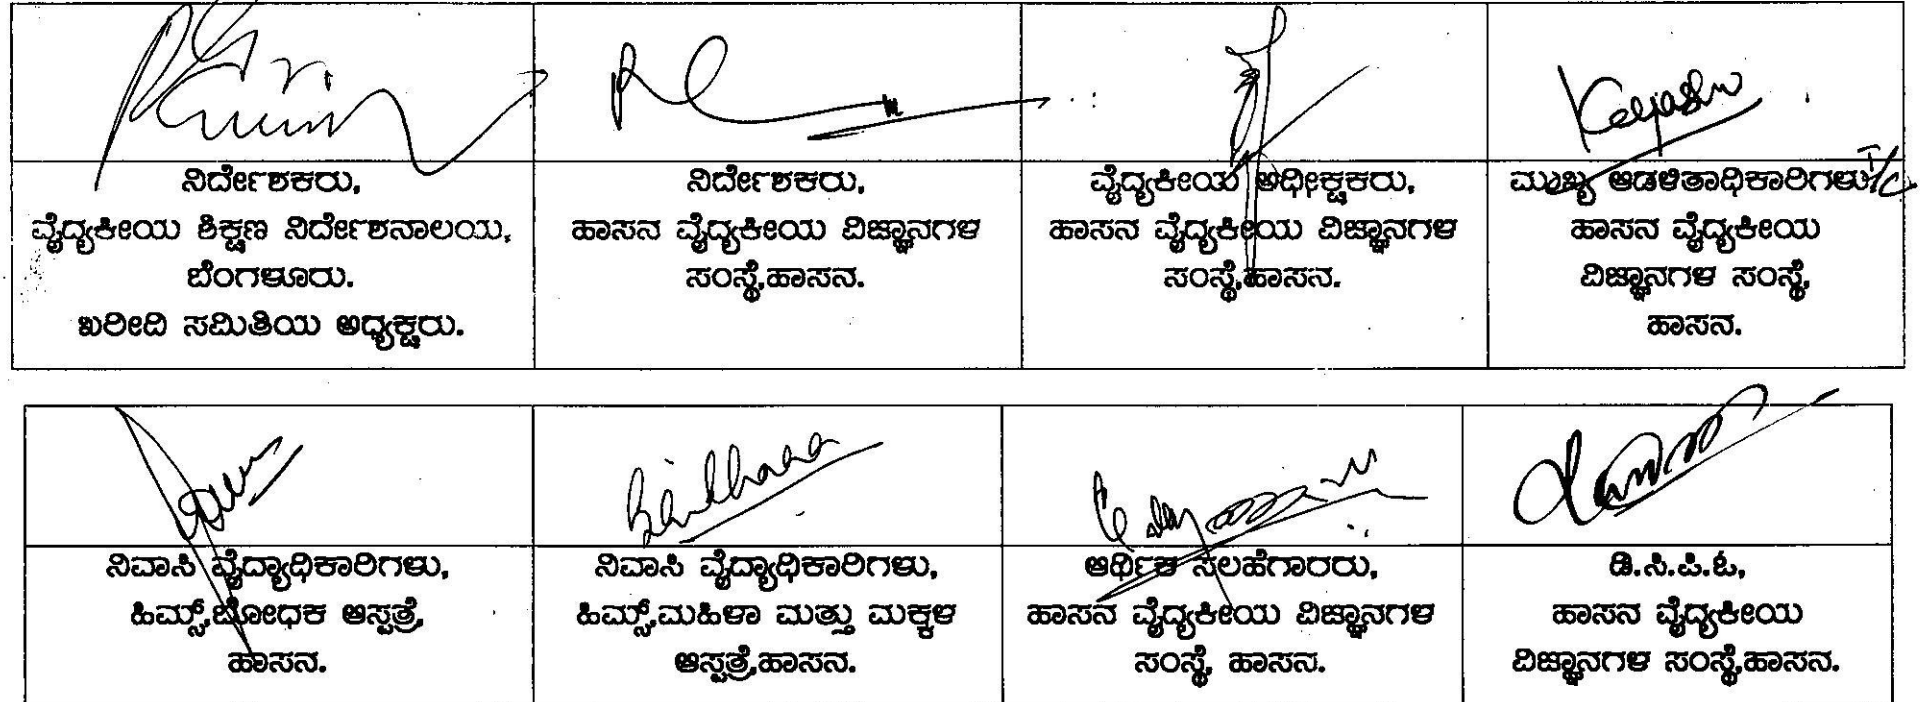 ನಿರ್ದೇಶಕರು,
ವೈದ್ಯಕೀಯ ಶಿಕ್ಷಣ ನಿರ್ದೇಶನಾಲಯ,
ಬೆಂಗಳೂರು.
ಖರೀದಿ ಸಮಿತಿಯ ಅಧ್ಯಕ್ಷರು.
ನಿರ್ದೇಶಕರು,
ಹಾಸನ ವೈದ್ಯಕೀಯ ವಿಜ್ಞಾನಗಳ
ಸಂಸ್ಥೆ,ಹಾಸನ.
ವೈದ್ಯಕೀಯ ಅಧೀಕ್ಷಕರು,
ಹಾಸನ ವೈದ್ಯಕೀಯ ವಿಜ್ಞಾನಗಳ
ಸಂಸ್ಥೆ,ಹಾಸನ.
ಮುಖ್ಯ ಆಡಳಿತಾಧಿಕಾರಿಗಳು I/C
ಹಾಸನ ವೈದ್ಯಕೀಯ
ವಿಜ್ಞಾನಗಳ ಸಂಸ್ಥೆ,
ಹಾಸನ.
ನಿವಾಸಿ ವೈದ್ಯಾಧಿಕಾರಿಗಳು,
ಹಿಮ್ಸ್,ಬೋಧಕ ಆಸ್ಪತ್ರೆ,
ಹಾಸನ.
ನಿವಾಸಿ ವೈದ್ಯಾಧಿಕಾರಿಗಳು,
ಹಿಮ್ಸ್,ಮಹಿಳಾ ಮತ್ತು ಮಕ್ಕಳ
ಆಸ್ಪತ್ರೆ,ಹಾಸನ.
ಆರ್ಥಿಕ ಸಲಹೆಗಾರರು,
ಹಾಸನ ವೈದ್ಯಕೀಯ ವಿಜ್ಞಾನಗಳ
ಸಂಸ್ಥೆ, ಹಾಸನ.
ಡಿ.ಸಿ.ಪಿ.ಓ,
ಹಾಸನ ವೈದ್ಯಕೀಯ
ವಿಜ್ಞಾನಗಳ ಸಂಸ್ಥೆ,ಹಾಸನ.